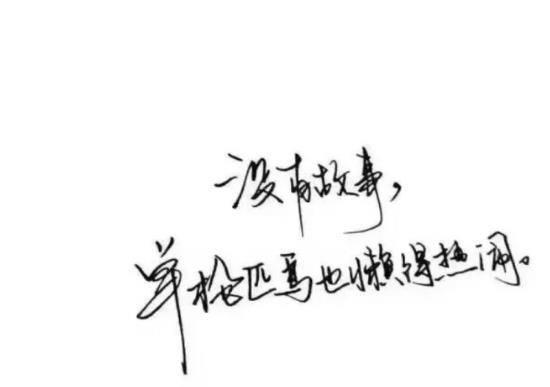 没有故事，
单枪匹马也懒得热闹。